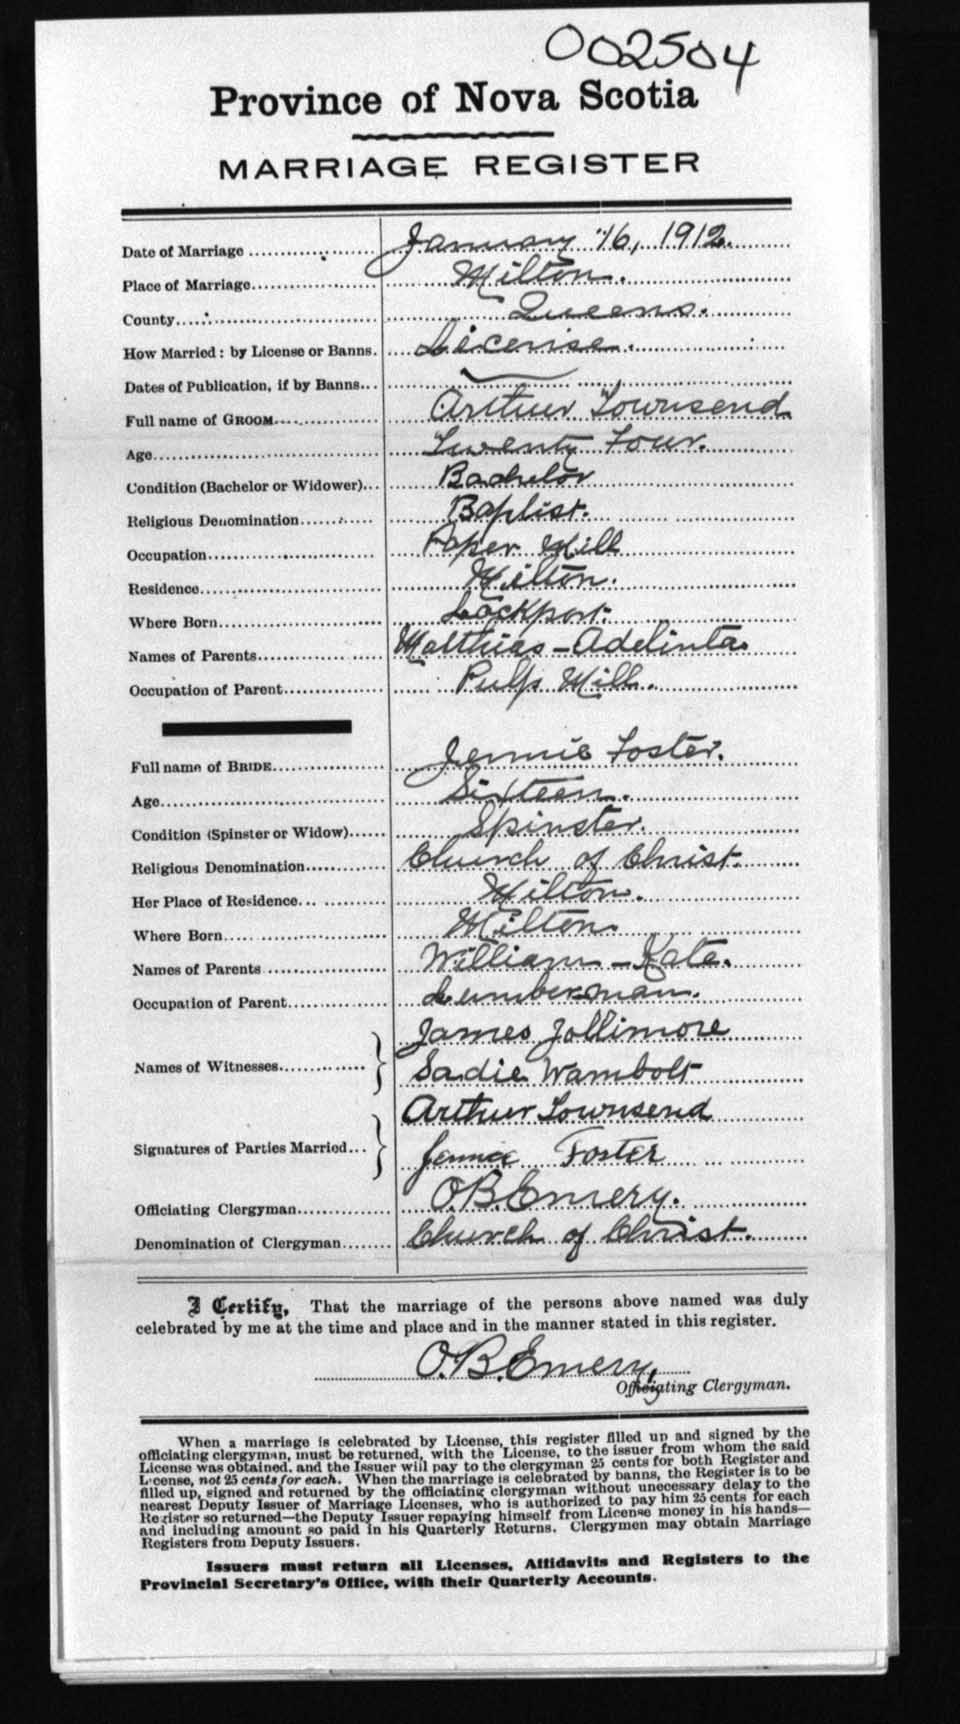 002504
Province of Nova Scotia
MARRIAGE REGISTER
Date of Marriage January 16, 1912.
Place of Marriage Milton.
County Queens.
How Married: by License or Banns. License.
Dates of Publication, if by Banns
Full name of GROOM Arthur Townsend
Age Twenty Four.
Condition (Bachelor or Widower) Bachelor
Religious Denomination Baptist.
Occupation Paper Mill
Residence Milton.
Where Born Lockport.
Names of Parents Matthias - Adelinta.
Occupation of Parent Pulp Mill.
Full name of BRIDE Jennie Foster.
Age Sixteen.
Condition (Spinster or Widow) Spinster.
Religious Denomination Church of Christ.
Her Place of Residence Milton.
Where Born Milton.
Names of Parents William - Kate.
Occupation of Parent Lumberman.
James Jollimore
Names of Witnesses
Sadie Wambolt
Arthur Townsend
Signatures of Parties Married
Jennie Foster
Officiating Clergyman O.B. Emery.
Denomination of Clergyman Church of Christ.
I Certify, That the marriage of the persons above named was duly
celebrated by me at the time and place and in the manner stated in this register.
O.B. Emery,
Officiating Clergyman.
When a marriage is celebrated by License, this register filled up and signed by the
officiating clergyman, must be returned, with the License, to the issuer from whom the said
License was obtained, and the Issuer will pay to the clergyman 25 cents for both Register and
License, not 25 cents for each. When the marriage is celebrated by banns, the Register is to be
filled up, signed and returned by the officiating clergyman without unnecessary delay to the
nearest Deputy Issuer of Marriage Licenses, who is authorized to pay him 25 cents for each
Register so returned—the Deputy Issuer repaying himself from License money in his hands—
and including amount so paid in his Quarterly Returns. Clergymen may obtain Marriage
Registers from Deputy Issuers.
Issuers must return all Licenses, Affidavits and Registers to the
Provincial Secretary's Office, with their Quarterly Accounts.